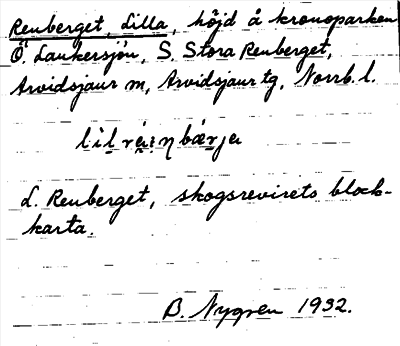 Renberget, Lilla, höjd å kronoparken
Ö. Laukersjön, S. Stora Renberget,
Arvidsjaur m, Arvidsjaur tg, Norrb. l.
L. Renberget, skogsrevirets block-
karta.
B. Nygren 1932.